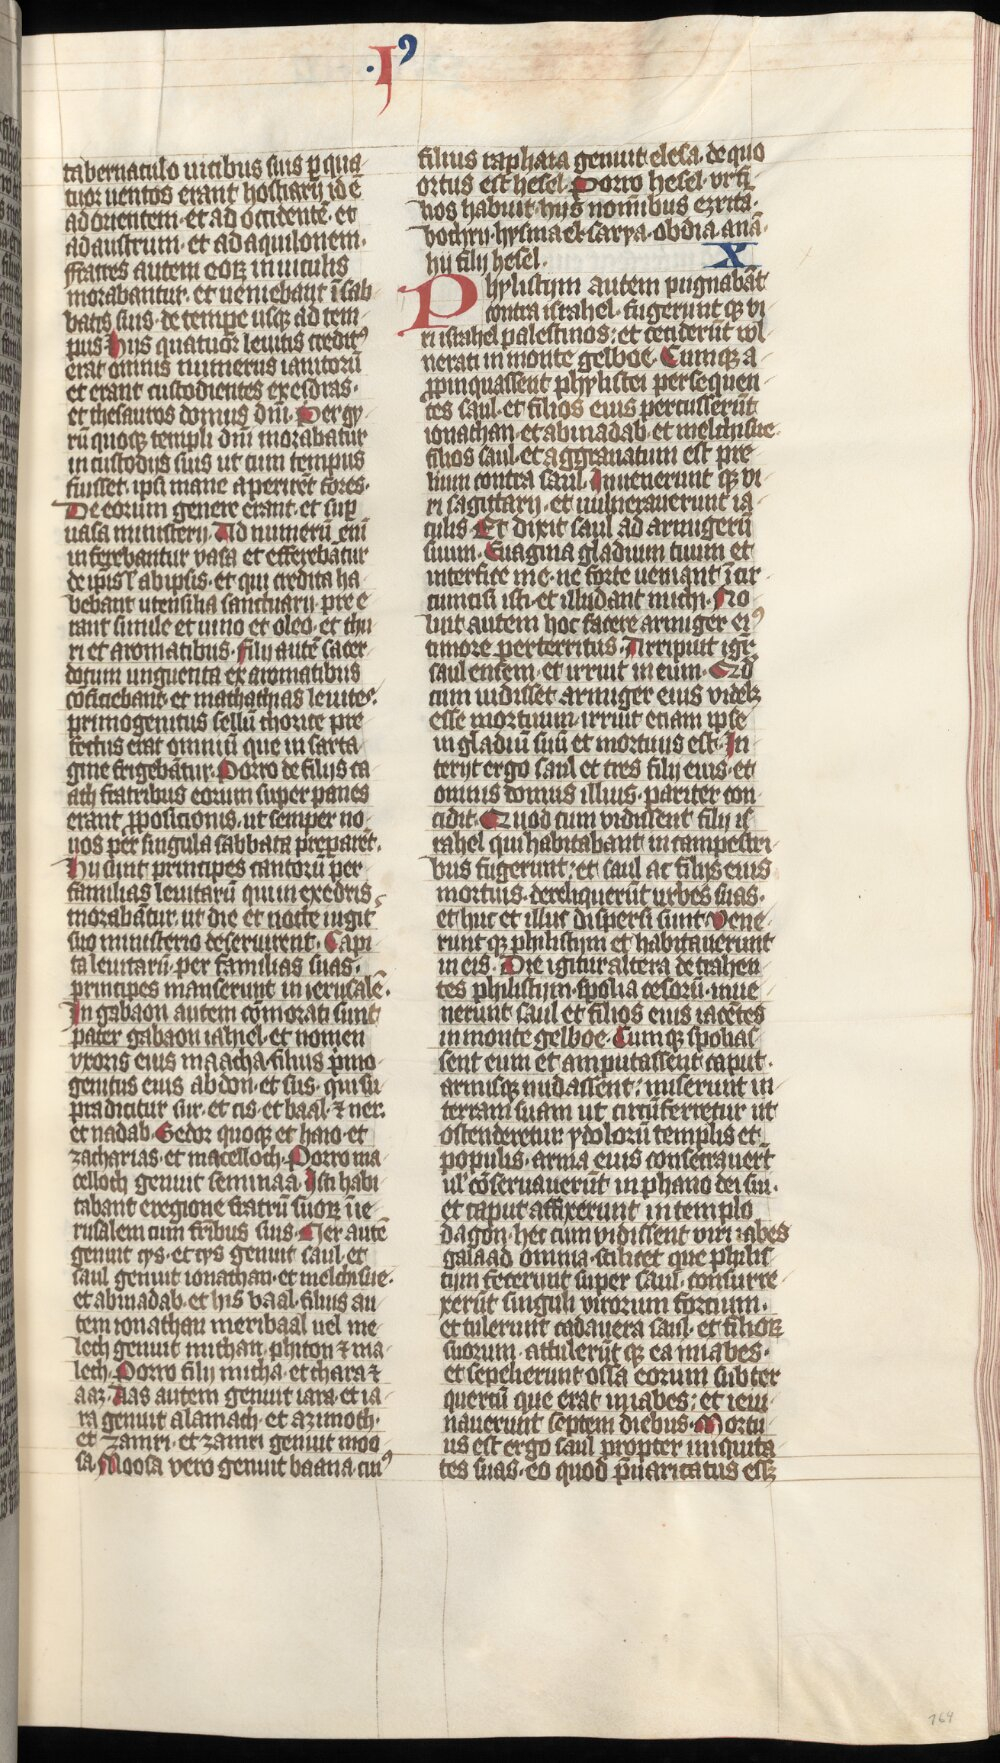 ·I⁹
tabernaculo uicibus suis p qua
tuor uentos erant hostiarij id ē
ad orientem· et ad occidentē· et
ad austrum· et ad aquilonem·
ffratres autem eoꝝ in uiculis
morabantur· et ueniebant ī sab
batis suis· de tempe usqꝫ ad tem
pus· hijs quatuor leuitis creditꝰ
erat omnis numerus ianitorū
et erant custodientes exedras·
et thesauros domus dn̄i· Per gy
rū quoqꝫ templi dn̄i morabatur
in custodijs suis ut cum tempus
fuisset· ipsi mane aperirēt fores·
De eorum genere erant· et sup
uasa ministerij· Ad numerū eni̅
inferebantur vasa et efferebatur
de ip̄is ł ab ipsis· et qui credita ha
bebant utensilia sanctuarij· pre e
rant simile et uino et oleo· et thu
ri et aromatibus· filij autē sacer
dotum unguenta ex aromatibus
cōficiebant· et mathathias leuites·
primogenitus sellū chorite pre
fectus erat omniū que in sarta
gine frigebātur· Porro de filijs ca
ath fratribus eorum super panes
erant ꝓposicionis· ut semper no
uos per singula sabbata preparēt·
hij sunt principes cantorū per
familias leuitarū qui in exedris
morabātur· ut die et nocte iugit
suo ministerio deseruirent· Capi
ta leuitarū· per familias suas·
principes manserunt in ierusalē·
In gabaon autem cōmorati sunt
pater gabaon iahiel· et nomen
vxoris eius maacha· filius p̄mo
genitus eius abdon· et sus· qui su
pra dicitur sur· et cis· et baal· ⁊ ner·
et nadab· Gedor quoqꝫ et haio· et
zacharias· et macelloch· Porro ma
celloch genuit seminaa· Isti habi
tabant e regione fratrū suoꝝ ī ie
rusalem cum frībus suis· Ner autē
genuit cys· et cys genuit saul· et
saul genuit ionathan· et melchisue·
et abinadab· et hisbaal· filius au
tem ionathan meribaal uel me
lech genuit michan· phiton ⁊ ma
lech· Porro filij micha· et thara ⁊
aaz· Aas autem genuit iara· et ia
ra genuit alamach· et azimoth·
et zamri· et zamri genuit moo
sa· Moosa vero genuit baana· cuiꝰ
filius raphaia genuit elesa· de quo
ortus est hesel· Porro hesel· vi fi
lios habuit· hijs nomībus ezrica·
bochrij· hysmael· sarya· obdia· anā·
hij filij hesel· X
Phylistijm autem pugnabāt
contra israhel· fugerunt qꝫ vi
ri israhel palestinos· et ceciderūt wl
nerati in monte gelboe· Cumqꝫ a
ꝓpinquassent phylistei persequen
tes saul· et filios eius percusserūt
ionathan· et abinadab· et melchisue·
filios saul· et aggrauatum est pre
lium contra saul· Inuenerunt qꝫ vi
ri sagittarij· et uulnerauerunt ia
culis· Et dixit saul ad armigerū
suum· Euagina gladium tuum et
interfice me· ne forte ueniant ī cir
cumcisi isti· et illudant michi· No
luit autem hoc facere armiger eiꝰ
timore perterritus· Arripuit igr̄
saul ensem· et irruit in eum· Qd̄
cum uidisset armiger eius videlꝫ
esse mortuum· irruit etiam ipse
in gladiū suū et mortuus est· In
terijt ergo saul et tres filij eius· et
omnis domus illius· pariter con
cidit· Quod cum vidissent filij is
rahel qui habitabant in campestri
bus fugerunt· et saul ac filijs eius
mortuis· dereliquerūt urbes suas·
et huc et illuc dispersi sunt· Vene
runt qꝫ philistijm et habitauerunt
in eis· Die igitur altera detrahen
tes philistijm· spolia cesorū· inue
nerunt saul et filios eius iacētes
in monte gelboe· Cumqꝫ spolias
sent eum et amputassent caput·
armisqꝫ nudassent· miserunt in
terram suam ut circūferretur ut
ostenderetur ydolorū templis et
populis· arma eius consecrauer̄t
ul' cōseruauerūt in phano dei sui·
et caput affixerunt in templo
dagon· hec cum vidissent viri iabes
galaad omnia· scilicet que philis
tijm fecerunt super saul· consurre
xerūt singuli virorum fortium·
et tulerunt cadauera saul· et filioꝝ
suorum· attulerūt qꝫ ea in iabes·
et sepelierunt ossa eorum subter
quercū que erat in iabes· et ieiu
nauerunt septem diebus· Mortu
us est ergo saul propter iniquita
tes suas· eo quod p̄uaricatus essꝫ
164